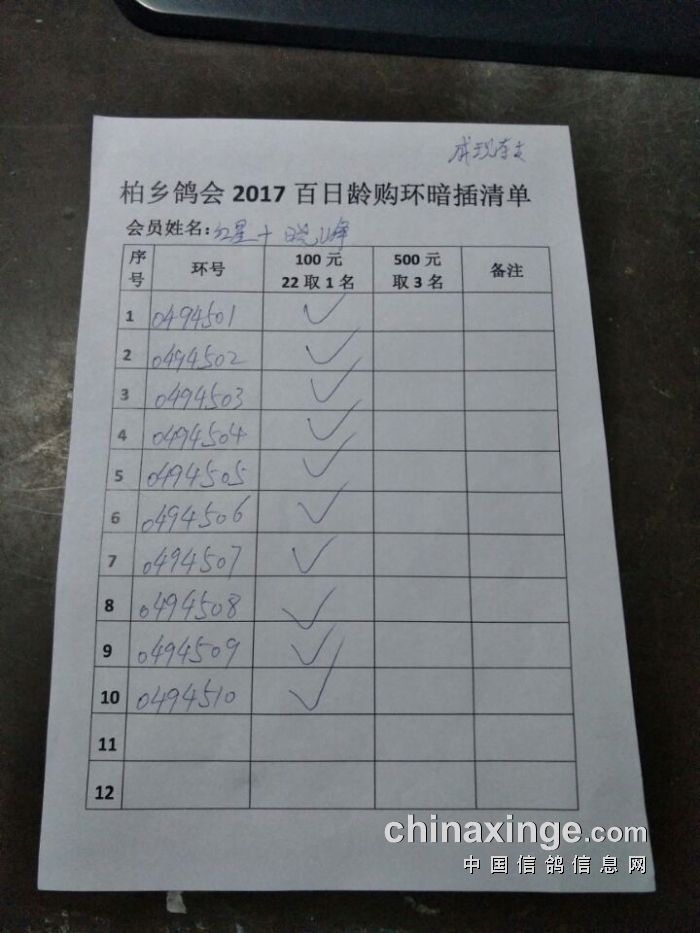 柏乡鸽会 2017 百日龄购环暗插清单
会员姓名: 红星+晓峰
序号 环号 100 元 22 取 1 名 500 元 取 3 名 备注
1 0494501 ✓
2 0494502 ✓
3 0494503 ✓
4 0494504 ✓
5 0494505 ✓
6 0494506 ✓
7 0494507 ✓
8 0494508 ✓
9 0494509 ✓
10 0494510 ✓
11
12
chinaxinge.com
中国信鸽信息网